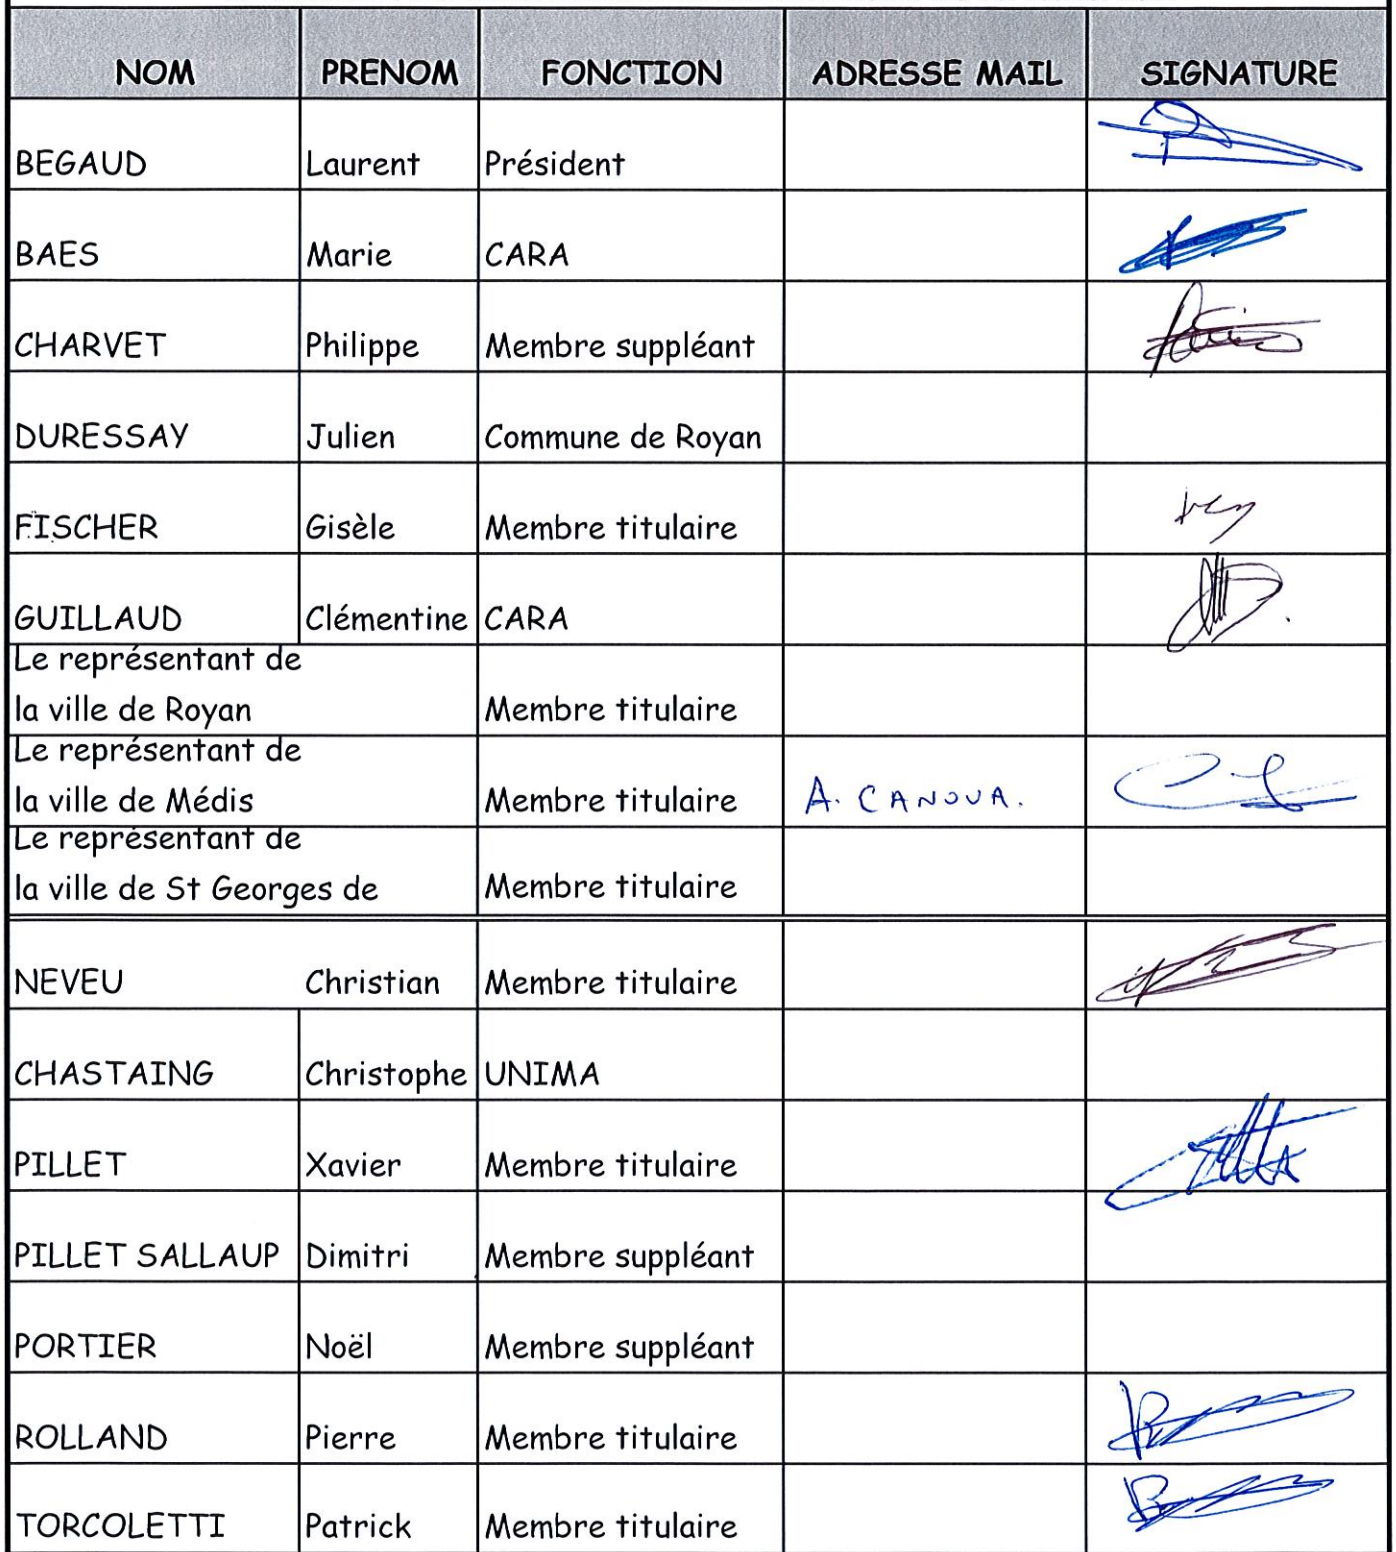 NOM PRENOM FONCTION ADRESSE MAIL SIGNATURE
BEGAUD Laurent Président
BAES Marie CARA
CHARVET Philippe Membre suppléant
DURESSAY Julien Commune de Royan
FISCHER Gisèle Membre titulaire
GUILLAUD Clémentine CARA
Le représentant de
la ville de Royan Membre titulaire
Le représentant de
la ville de Médis Membre titulaire A. CANOVA.
Le représentant de
la ville de St Georges de Membre titulaire
NEVEU Christian Membre titulaire
CHASTAING Christophe UNIMA
PILLET Xavier Membre titulaire
PILLET SALLAUP Dimitri Membre suppléant
PORTIER Noël Membre suppléant
ROLLAND Pierre Membre titulaire
TORCOLETTI Patrick Membre titulaire